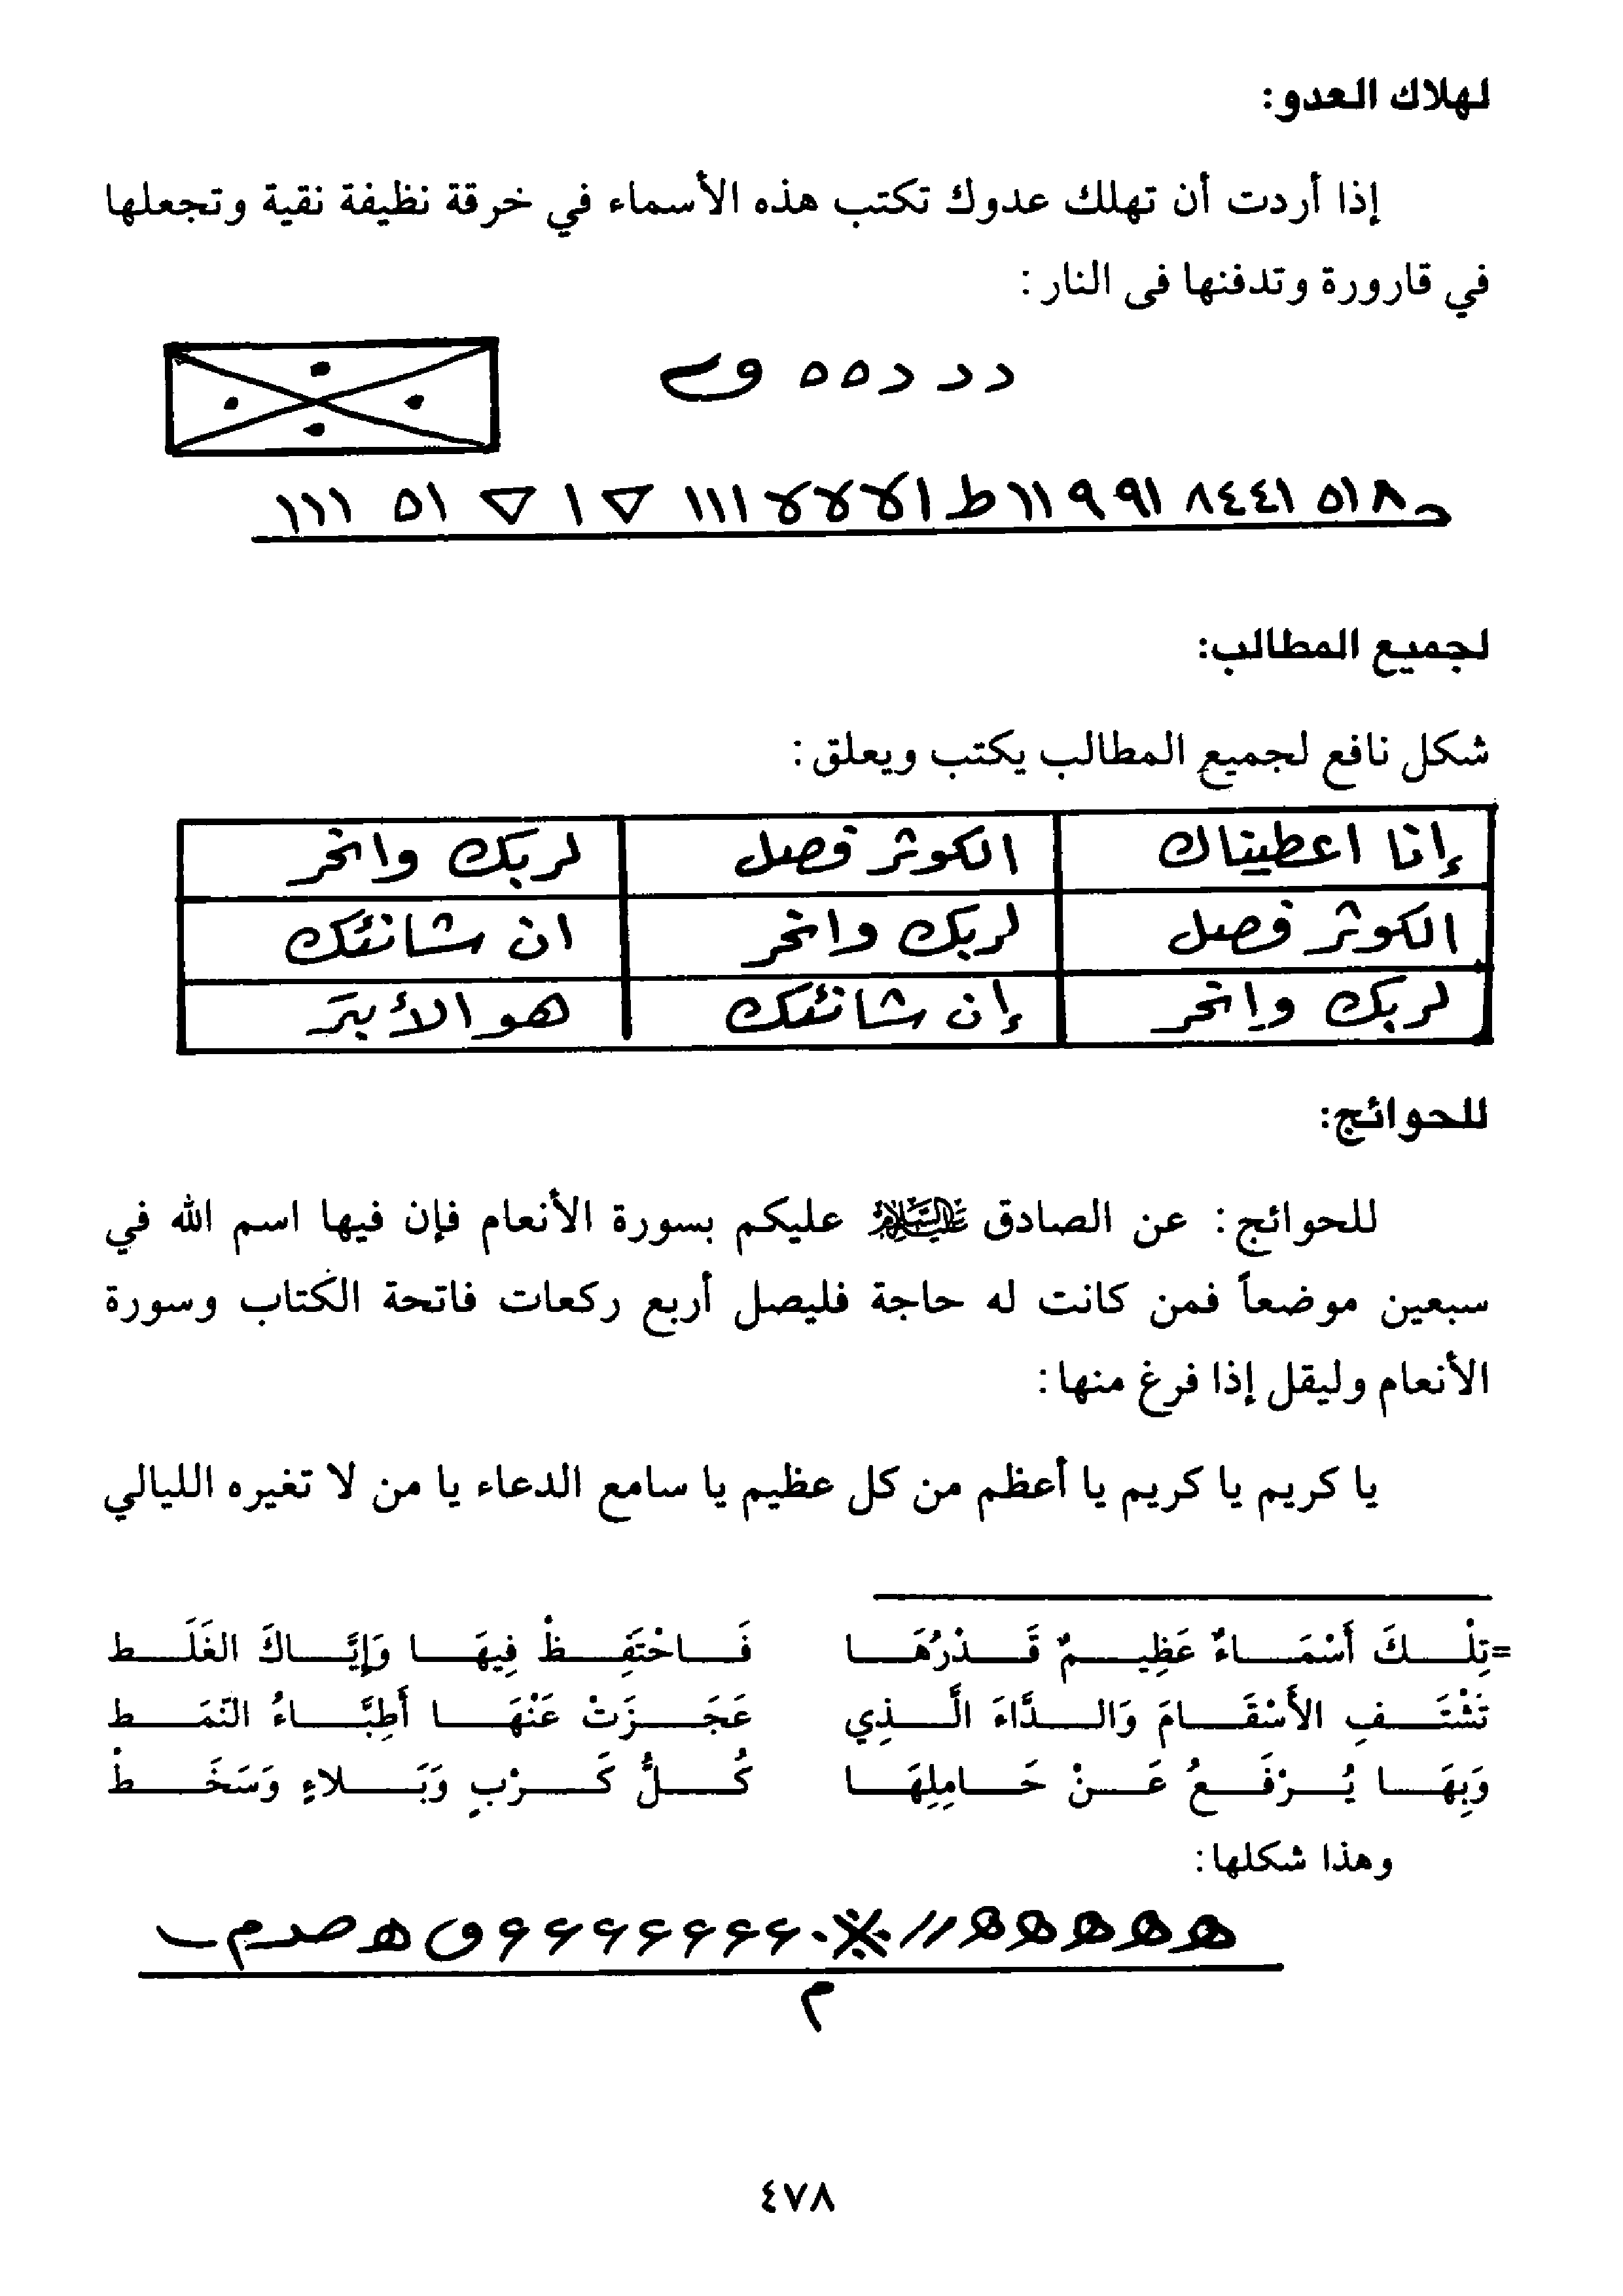 لهلاك العدو:
إذا أردت أن تهلك عدوك تكتب هذه الأسماء في خرقة نظيفة نقية وتجعلها
في قارورة وتدفنها في النار:
د د د ٥ ٥
٨ ٥١ ٨٤٤١ ٩٩١ ١١ ط الا لا لا ١١١ ▽ ١ ▽ ٥١ ١١١
لجميع المطالب:
شكل نافع لجميع المطالب يكتب ويعلق:
إنا اعطيناك الكوثر فصل لربك وانحر
الكوثر فصل لربك وانحر ان شانئك
لربك وانحر إن شانئك هو الأبتر
للحوائج:
للحوائج: عن الصادق عليه السلام عليكم بسورة الأنعام فإن فيها اسم الله في
سبعين موضعاً فمن كانت له حاجة فليصل أربع ركعات فاتحة الكتاب وسورة
الأنعام وليقل إذا فرغ منها:
يا كريم يا كريم يا أعظم من كل عظيم يا سامع الدعاء يا من لا تغيره الليالي
=تِلْكَ أَسْمَاءٌ عَظِيمٌ قَدْرُهَا فَاحْتَفِظْ فِيهَا وَإِيَّاكَ الغَلَط
تَشْتَفِ الأَسْقَامَ وَالدَّاءَ الَّذِي عَجَزَتْ عَنْهَا أَطِبَّاءُ النَّمَط
وَبِهَا يُرْفَعُ عَنْ حَامِلِهَا كُلُّ كَرْبٍ وَبَلاءٍ وَسَخَطْ
وهذا شكلها:
ه ه ه ه ه // ※ ء ء ء ء ء ء ء ق ه صد م ب
م
٤٧٨